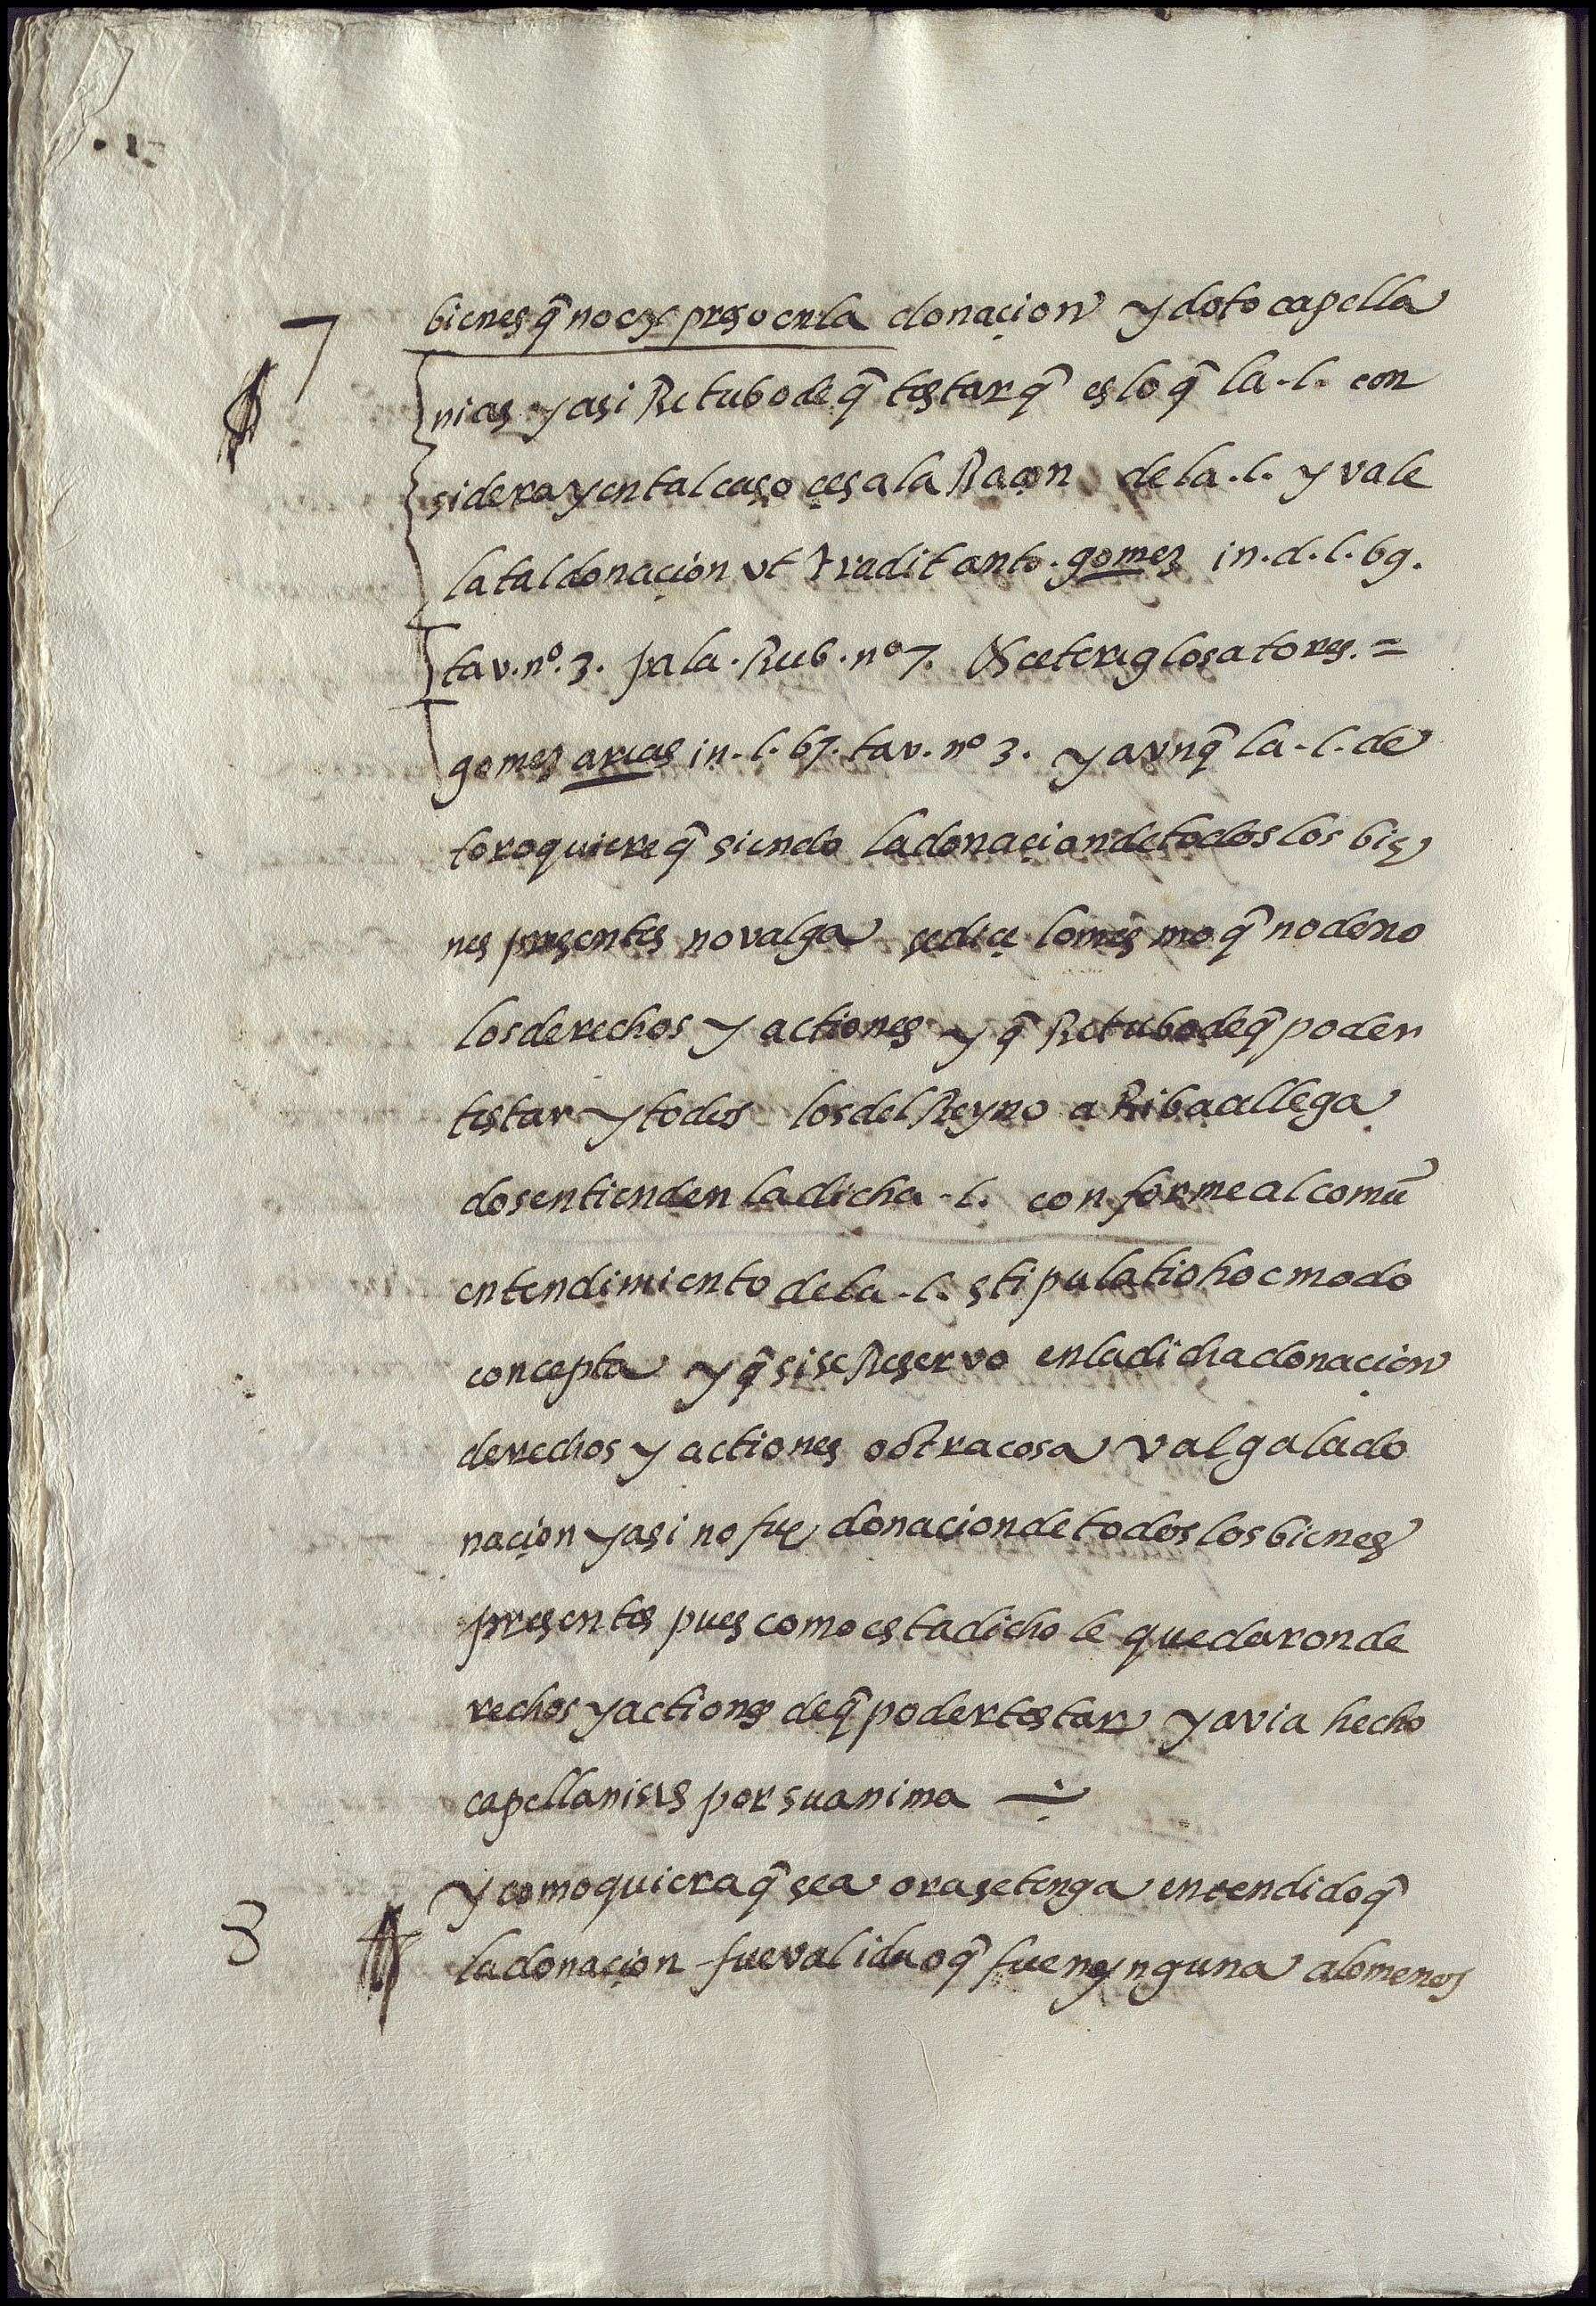 7 bienes q̃ no espreso en la donaçion y doto capella
nias y asi Retubo de q̃ testar q̃ es lo q̃ la .l. con
sidera y en tal caso çesa la Raçon de la .l. y vale
la tal donaçion vt tradit anto. gomez in. d. l. 69.
tav. nº. 3. pala. Rub. nº 7. & ceteri glosatores. =
gomez arias in. l. 67. tav. nº 3. y avnq̃ la .l. de
toro quiere q̃ siendo la donaçion de todos los bie
nes presentes no valga se diçe lo mesmo q̃ no deno
los derechos y actiones y q̃ Retubo de q̃ poder
testar y todos los del Reyno aRiba allega
dos entienden la dicha .l. conforme al comũ
entendimiento de la .l. stipulatio hoc modo
concepta y q̃ si se Reservo en la dicha donaçion
derechos y actiones o otra cosa valga la do
naçion y asi no fue donaçion de todos los bienes
presentes pues como esta dicho le quedaron de
rechos y actiones de q̃ poder testar y avia hecho
capellanias por su anima
8 y como quiera q̃ sea ora se tenga entendido q̃
la donaçion fue valida o q̃ fue nynguna alomenos